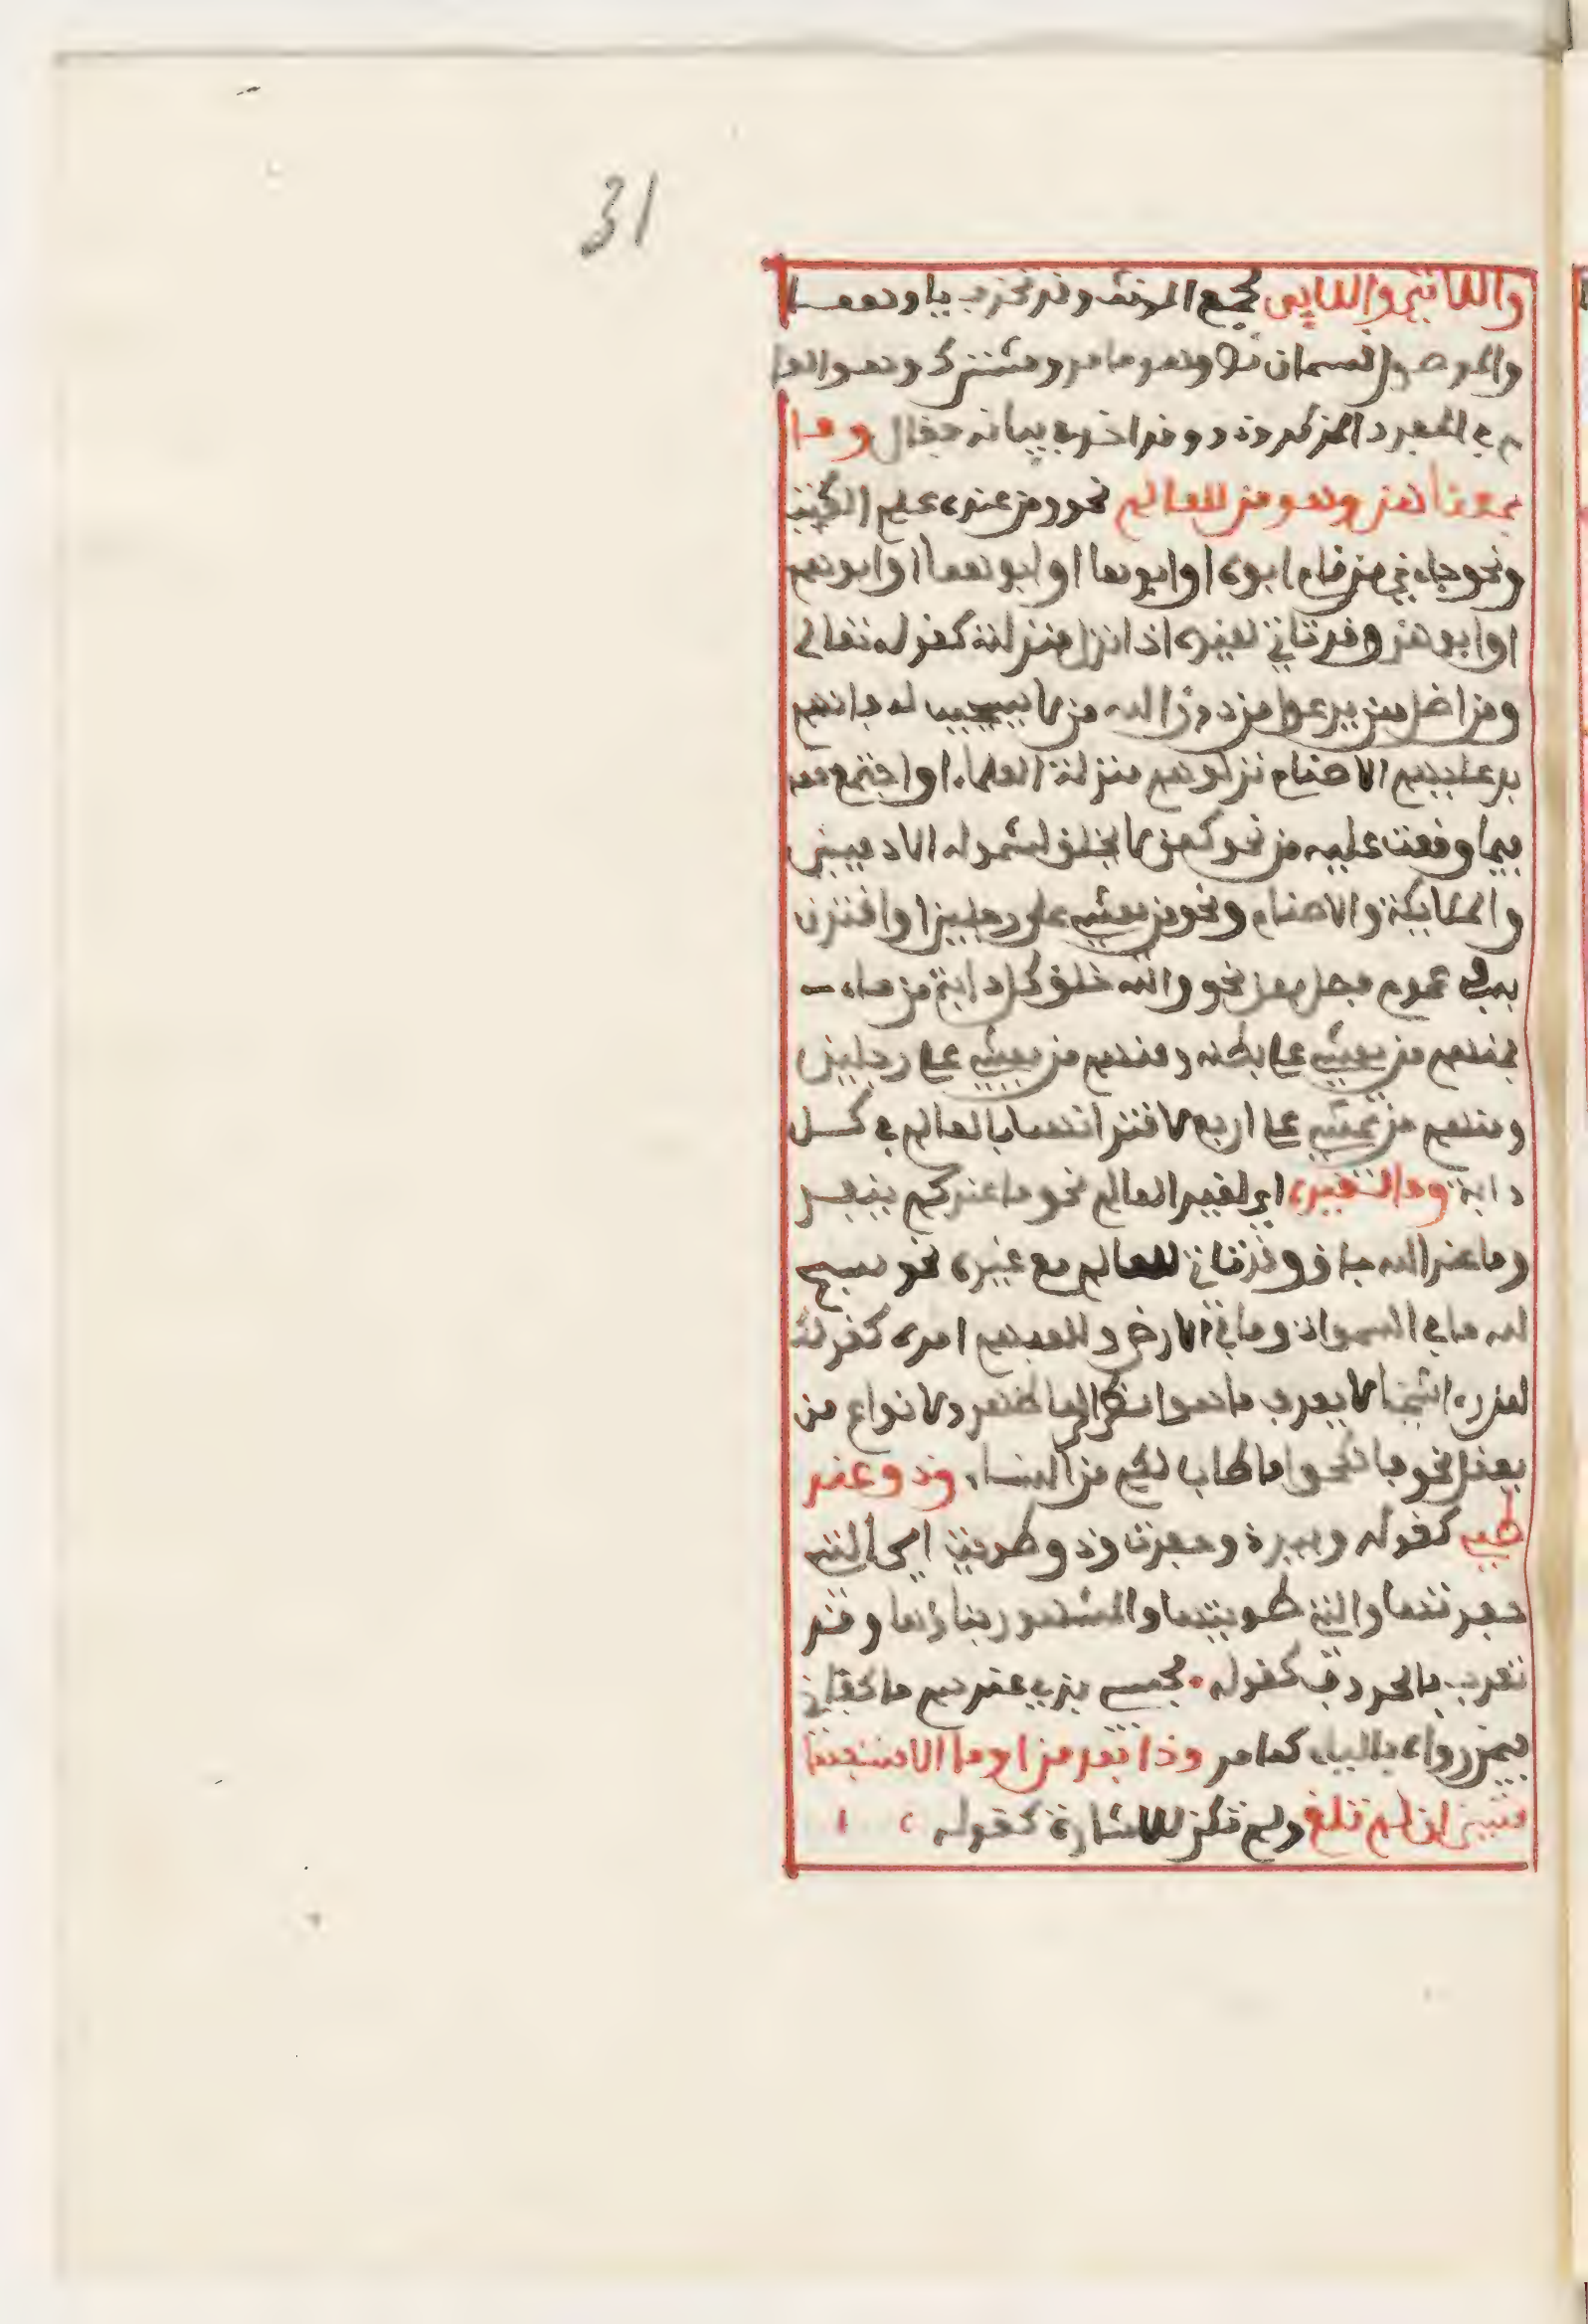 31
واللاتي واللايى لجمع المونث وقد تحذف ياوهما
والموصول قسمان نص وهو ما مر ومشترك وهو انما
هو المفرد المذكر وقد اخذ في بيانه فقال وما
بمعناهن وهو من للعالم نحو ومن عنده علم الكتب
ونحو جاءني من قام ابوه او ابوها او ابوهما او ابوهم
او ابوهن وقد تاتي لغيره اذا نزل منزلته كقوله تعالى
ومن اضل ممن يدعوا من دون الله من لا يستجيب له فانهم
بدعايهم الاصنام نزلوهم منزلة العلماء او اجتمع معه
فيما وقعت عليه من نحو كمن لا يخلق لشموله الادميين
والملايكة والاصنام ونحو من يمشي على رجلين او اقترن
به في عموم فصل بمن نحو والله خلق كل دابة من ماء
فمنهم من يمشي على بطنه ومنهم من يمشي على رجلين
ومنهم من يمشي على اربع لاقترانهما بالعالم في كل
دابة وما لغيره اي لغير العالم نحو ما عندكم ينفد
وما عند الله باق وقد تاتي للعالم مع غيره نحو سبح
لله ما في السموات وما في الارض وللمبهم امره كقولك
لمن راء اشبحا لا يعرف ما هو انظر الى ما ظهر ولانواع من
يعقل نحو فانكحوا ما طاب لكم من النساء وذو عند
طيء كقوله وبيرى ذو حفرت وذو طويت اي التي
حفرتها والتي طويتها والمشهور بناؤها وقد
تعرب بالحروف كقوله فحسبي من ذي عندهم ما كفاني
فيمن رواه بالياء كما مر وذا بعد من او ما الاستفهامـ
متين ان لم تلغ ولم تكن للاشارة كقوله